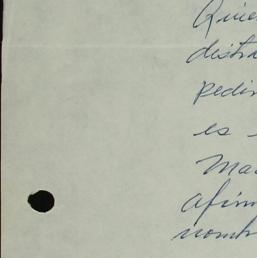 Quie
distra
pedir
es
Ma
afirm
nomb